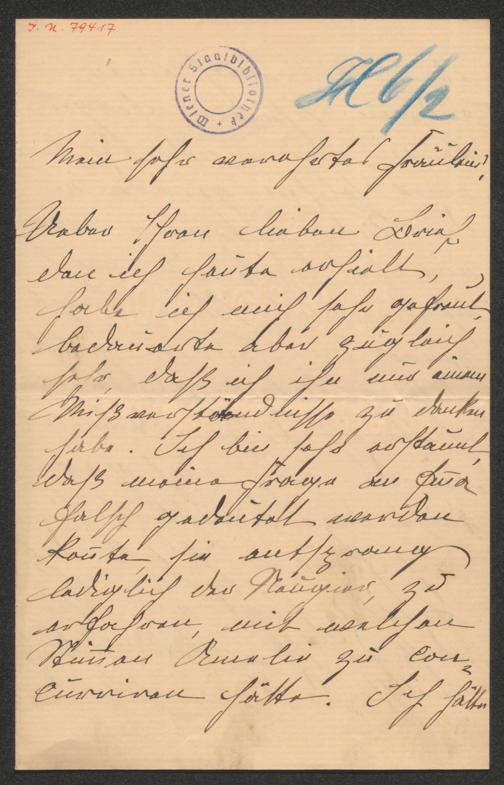 J. N. 79417
Wiener Stadtbibliothek
Mein sehr verehrtes Fräulein!
Ueber Ihren lieben Brief,
den ich heute erhielt,
habe ich mich sehr gefreut,
bedauerte aber zugleich
sehr, daß ich ihn nur einem
Mißverständnisse zu danken
habe. Ich bin sehr erstaunt,
daß meine Frage an
falsch gedeutet werden
konte, sie entsprang
lediglich der Neugier, zu
erfahren, mit welchen
Stimen Amelie zu con-
curriren hätte. Ich hätte